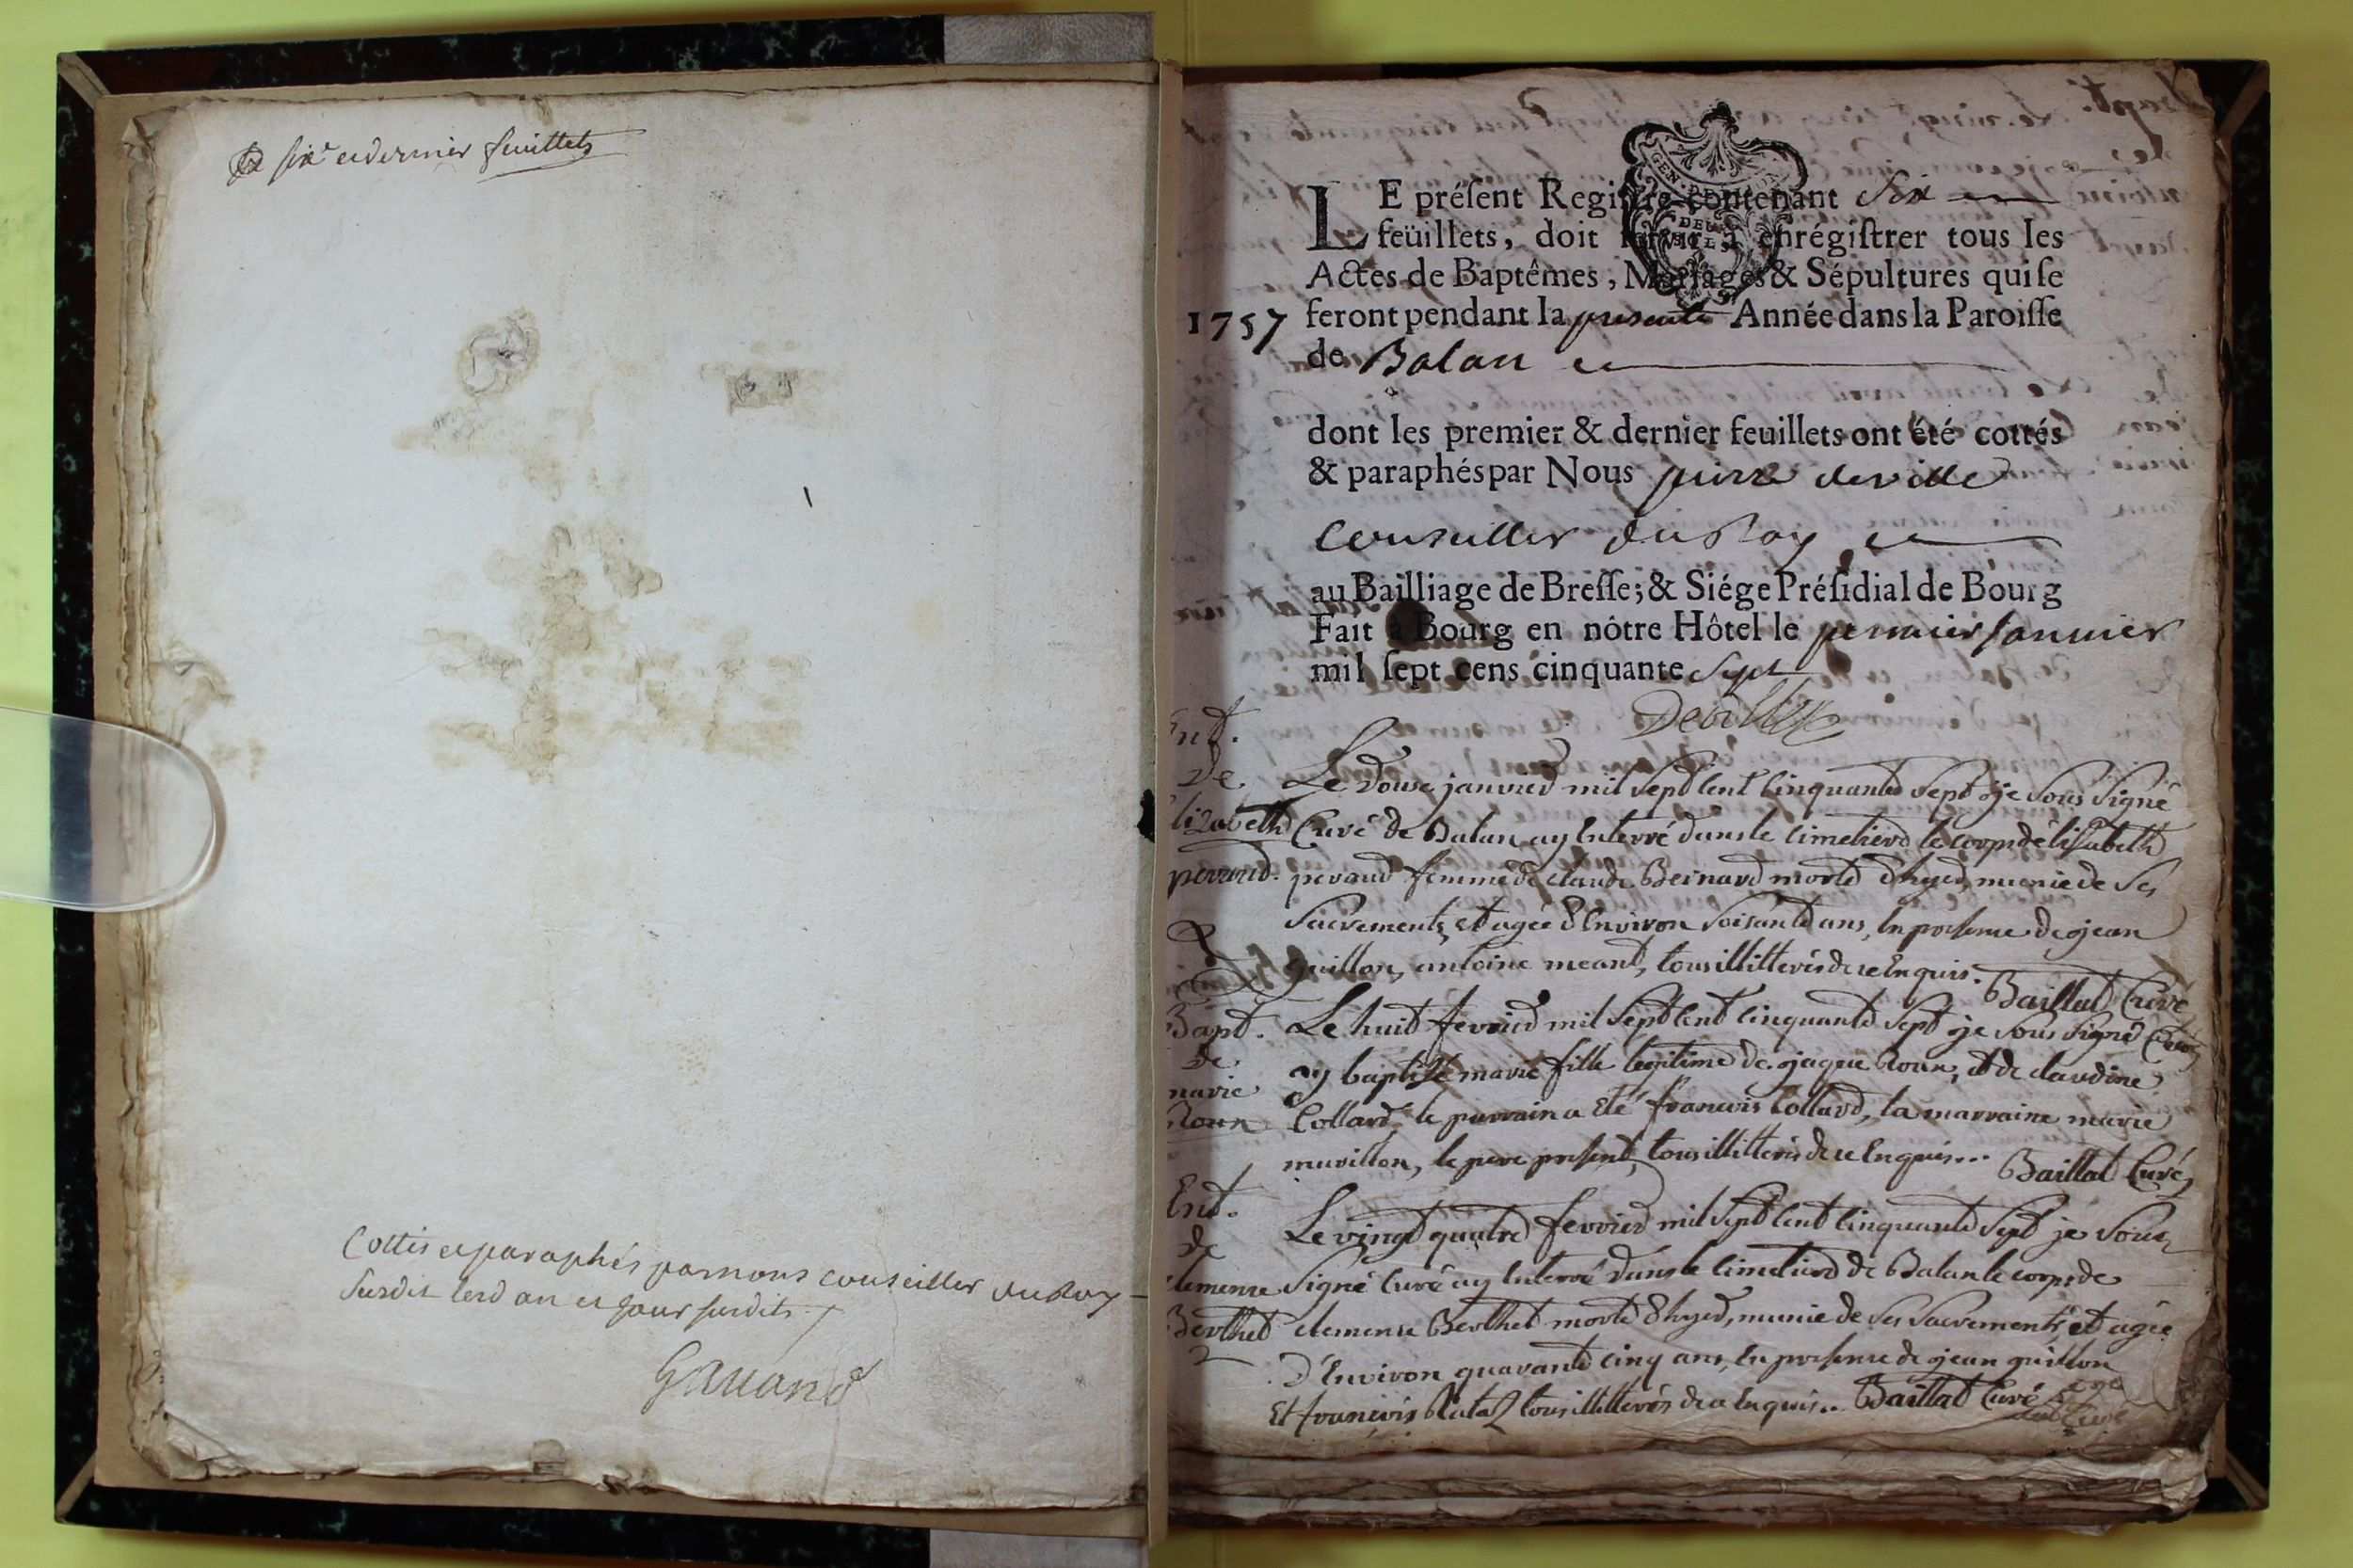 six.e et dernier feuillets
Cottés et paraphés par nous conseiller du Roy
susdit lesd an et jour susdits
LE préſent Regiſtre contenant six
feüillets, doit ſervir à enrégiſtrer tous les
Actes de Baptêmes, Mariages & Sépultures qui ſe
1757 feront pendant la presente Année dans la Paroiſſe
de Balan
dont les premier & dernier feuillets ont été cottés
& paraphés par Nous pierre deville
Conseiller du Roy
au Bailliage de Breſſe; & Siége Préſidial de Bourg
Fait à Bourg en nôtre Hôtel le premier Janvier
mil ſept cens cinquante Sept
Deville
Ent.
De
Elizabeth
peraud.
Le Douse janvier mil Sept Cent Cinquante Sept je Sous Signé
Curé de Balan ay Enterré dans le Cimetiere le corps d'élisabeth
peraud femme de claude Bernard morte d'hyer, munie de Ses
Sacrements, et agée d'Environ Soisante ans, En presence de jean
guillon, antoine meant, tous illitterés de ce Enquis. Baillat Curé
Bapt.
de
marie
Roux
Le huit fevrier mil Sept Cent Cinquante Sept je Sous Signé Curé
ay baptizé marie fille legitime de jaque Roux, et de claudine
Collard, le parrain a Eté francois Collard, la marraine marie
muvillon, le pere present, tous illitterés de ce Enquis... Baillat Curé
Ent.
de
clemence
Berthet
Le vingt quatre fevrier mil Sept Cent Cinquante Sept je Sous
Signé Curé ay Enterré dans le Cimetiere de Balan le corps de
clemence Berthet morte d'hyer, munie de Ses Sacrements, et agée
D'Environ quarante cinq ans, En presence de jean guillon
Et francois tous illitterés de ce Enquis.. Baillat Curé